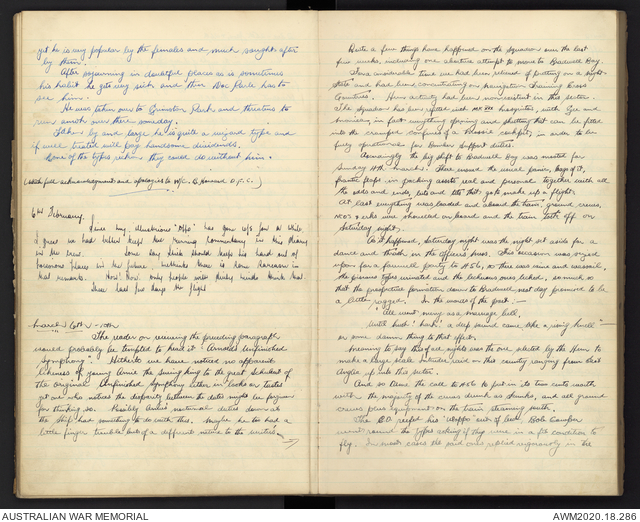 yet he is very popular by the females and much sought after
by them.
After sojourning in doubtful places as is sometimes
his habit he gets very sick and then Doc Earle has to
see him.
He was taken once to Grimston Park and threatens to
run amok over there someday.
Taken by and large he is quite a wizard type and
if well treated will pay handsome dividends.
None of the types reckon they could do without him.
(With full acknowledgment and apologies to W/C B. Howard D.F.C.)
6th February.
Since my illustrious "Oppo" has gone u/s for a while
I guess we had better keep the running commentary in this Diary
on the
Some day should keep his hand out of
poisonous places in the future. Methinks there is some sarcasm in
that remark. How? How? only people with dusky minds think that.
These last few days the flight
March 6th - 10th
The reader on reviewing the preceding paragraph
would probably be tempted to head it "Arnolds Unfinished
Symphony". Hitherto we have noticed no apparent
likeness of young Arnie the Swing King to the great Schubert of
the original Unfinished Symphony either in looks or tastes
yet one who notices the disparity between the dates might be forgiven
for thinking so. Possibly Arnies nocturnal duties down at
the Ship had something to do with this. Maybe he too had a
little finger trouble but of a different nature to the writers
Quite a few things have happened on the Squadron over the last
few weeks, including one abortive attempt to move to Bradwell Bay.
For a considerable time we had been relieved of putting on a night
state and had been concentrating on Navigation training Cross
Countries. Hun activity had been nonexistent in this sector.
The Squadron has been refitted with MK XXX Mosquitos, with Gee and
Monica, in fact anything glowing and glittering that can be fitted
into the cramped confines of a Mossie cockpit, in order to be
fully operational for Bomber Support duties.
Accordingly the big shift to Bradwell Bay was mooted for
Sunday 4th March. There ensued the usual panic, heaps of it,
frantic flaps in packing assets real and personal together with all
the odds and ends, bits and bits that go to make up a flight.
At last everything was loaded and aboard the train, ground crews,
NCOs & erks and shovelled on board and the train took off on
Saturday night.
As it happened, Saturday night was the night set aside for a
dance and thrash in the Officers Mess. This occasion was, agreed
upon for a farewell party to 456, so there was wine and wassail,
the ginious types ruminated and the lecherous ones leched, so much so
that the prospective formation down to Bradwell next day promised to be
a little ragged. In the words of the poet:-
"All went merry as a marriage bell.
Until hush! hark! a deep sound came like a rising knell"
or some damn thing to that effect.
Meaning to say this of all nights was the one selected by the Hun to
make a large scale intruder raid on this country ranging from East
Anglia up into this sector.
And so came the call to 456 to put in its two cents worth
with the majority of the crews drunk as skunks, and all ground
crews plus equipment on the train steaming south.
The C.O. reefed his 'Waffos' out of bed, Bob Cowper
went round the types asking if they were in a fit condition to
fly. In most cases the said ones replied vigorously in the
AUSTRALIAN WAR MEMORIAL
AWM2020.18.286